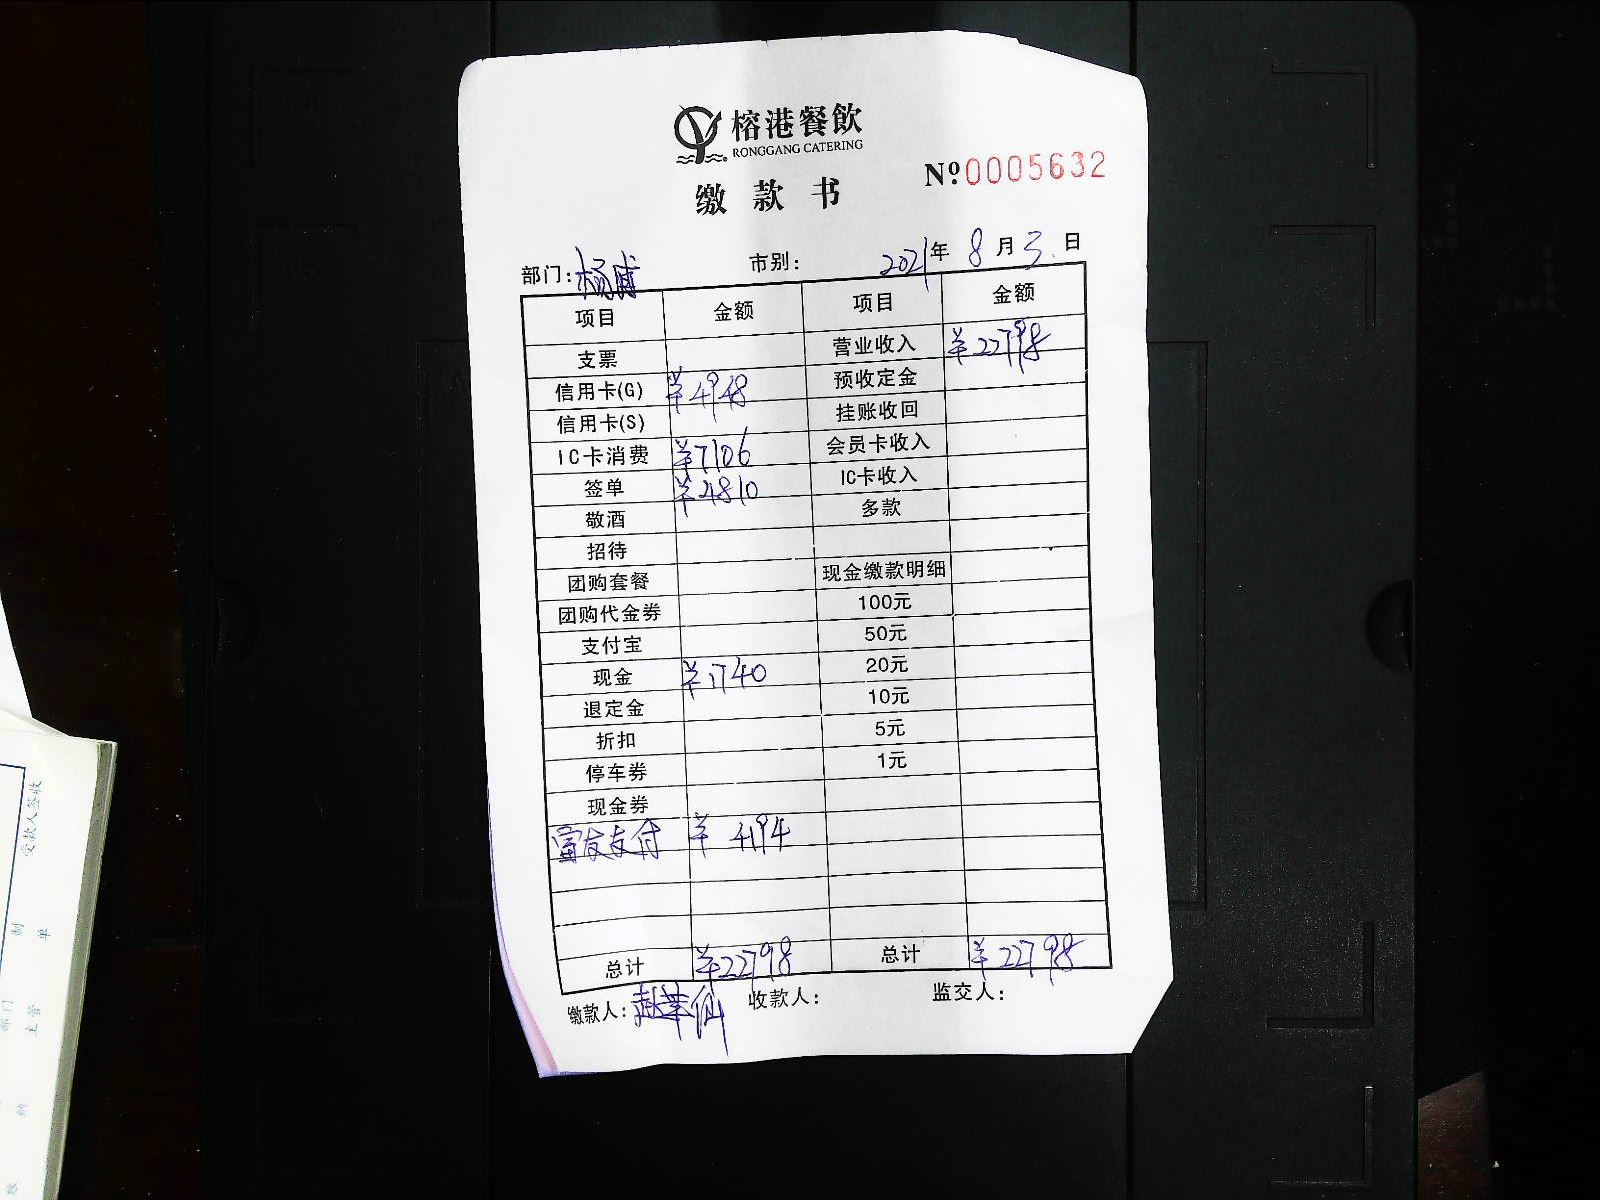 榕港餐飲
RONGGANG CATERING
缴款书
Nº 0005632
部门：杨浦 市别： 2021年 8月 3日
项目 金额 项目 金额
支票 营业收入 ¥22798
信用卡(G) ¥4948 预收定金
信用卡(S) 挂账收回
IC卡消费 ¥7106 会员卡收入
签单 ¥4810 IC卡收入
敬酒 多款
招待
团购套餐 现金缴款明细
团购代金券 100元
支付宝 50元
现金 ¥1740 20元
退定金 10元
折扣 5元
停车券 1元
现金券
富友支付 ¥4194
总计 ¥22798 总计 ¥22798
缴款人： 收款人： 监交人：
受款人签收
制单
部门主管